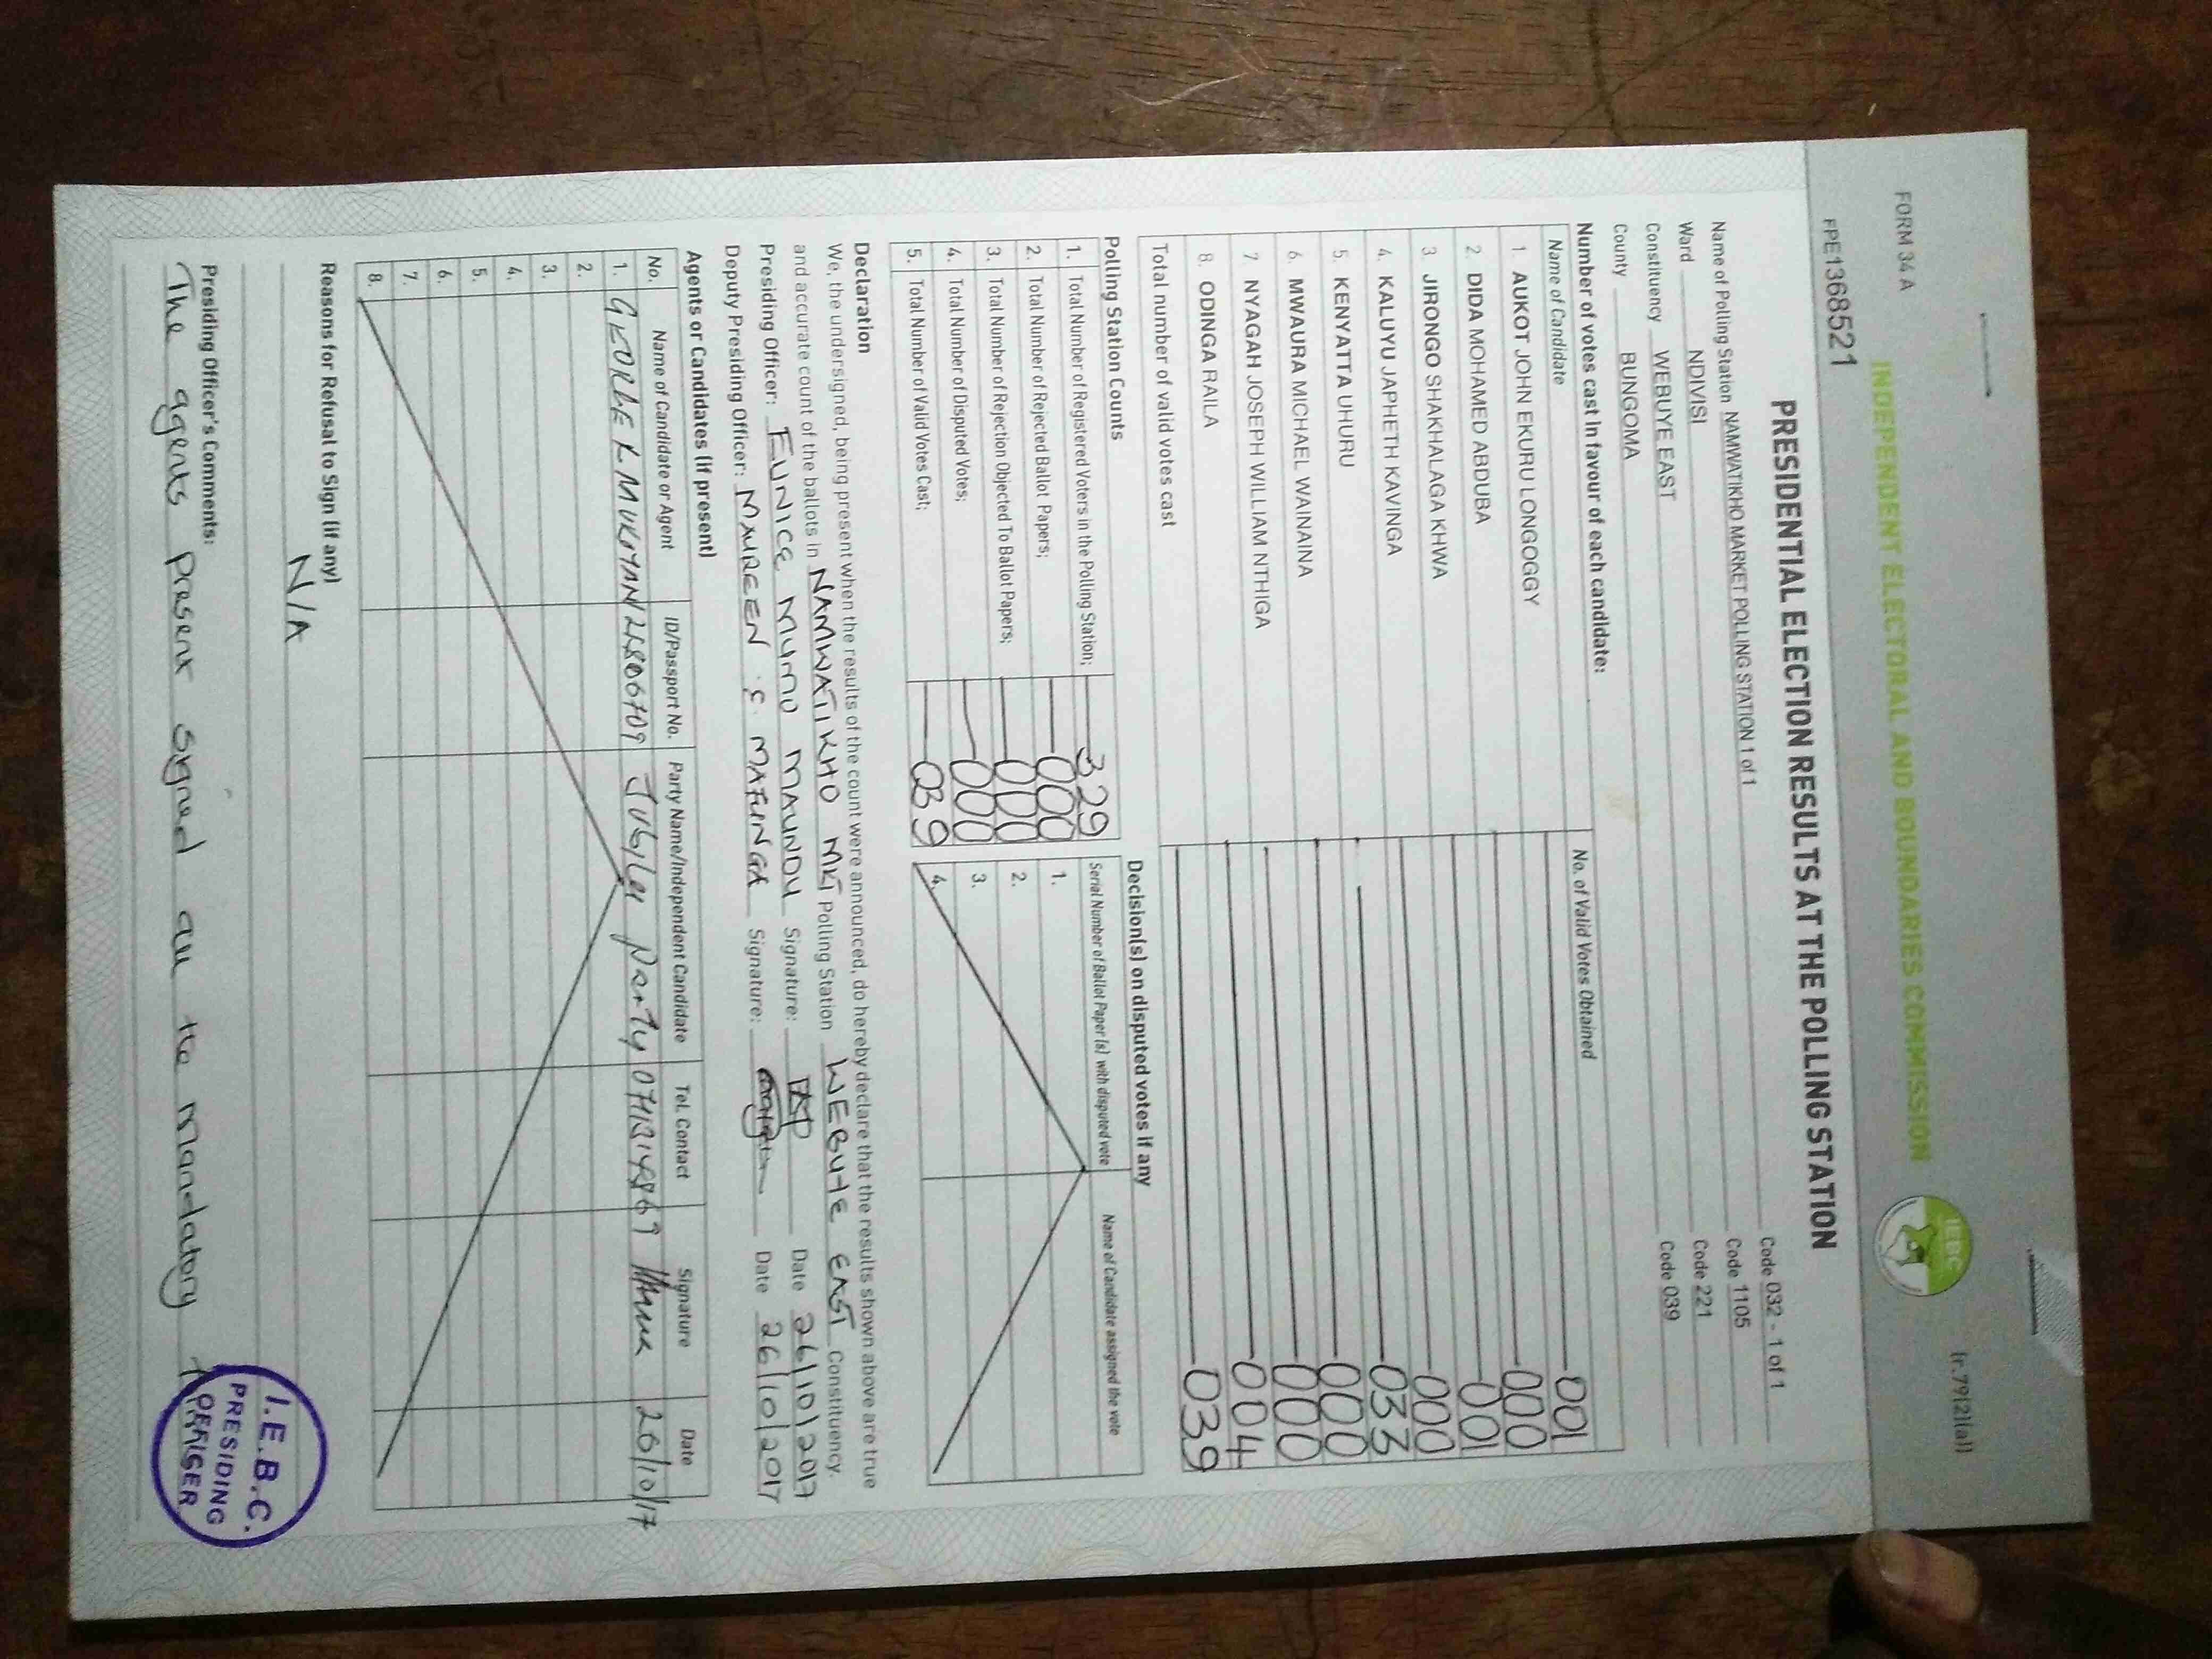 FORM 34 A
(r.79(2)(a))
INDEPENDENT ELECTORAL AND BOUNDARIES COMMISSION
IEBC
FPE1368521
PRESIDENTIAL ELECTION RESULTS AT THE POLLING STATION
Name of Polling Station NAMWATIKHO MARKET POLLING STATION 1 of 1 Code 032 - 1 of 1
Ward NDIVISI Code 1105
Constituency WEBUYE EAST Code 221
County BUNGOMA Code 039
Number of votes cast in favour of each candidate:
Name of Candidate No. of Valid Votes Obtained
1. AUKOT JOHN EKURU LONGOGGY 001
2. DIDA MOHAMED ABDUBA 000
3. JIRONGO SHAKHALAGA KHWA 001
4. KALUYU JAPHETH KAVINGA 000
5. KENYATTA UHURU 033
6. MWAURA MICHAEL WAINAINA 000
7. NYAGAH JOSEPH WILLIAM NTHIGA 000
8. ODINGA RAILA 004
Total number of valid votes cast 039
Polling Station Counts
1. Total Number of Registered Voters in the Polling Station; 329
2. Total Number of Rejected Ballot Papers; 000
3. Total Number of Rejection Objected To Ballot Papers; 000
4. Total Number of Disputed Votes; 000
5. Total Number of Valid Votes Cast; 039
Decision(s) on disputed votes if any
Serial Number of Ballot Paper (s) with disputed vote Name of Candidate assigned the vote
1.
2.
3.
4.
Declaration
We, the undersigned, being present when the results of the count were announced, do hereby declare that the results shown above are true
and accurate count of the ballots in NAMWATIKHO MKT Polling Station WEBUYE EAST Constituency.
Presiding Officer: EUNICE MUMO MAUNDU Signature: Date 26/10/2017
Deputy Presiding Officer: MAUREEN S. MAFUNGA Signature: Date 26/10/2017
Agents or Candidates (if present)
No. Name of Candidate or Agent ID/Passport No. Party Name/Independent Candidate Tel. Contact Signature Date
1. GEORGE Jubilee Party 26/10/17
2.
3.
4.
5.
6.
7.
8.
Reasons for Refusal to Sign (if any)
N/A
Presiding Officer's Comments:
The agents present signed all the mandatory
I.E.B.C.
PRESIDING
OFFICER